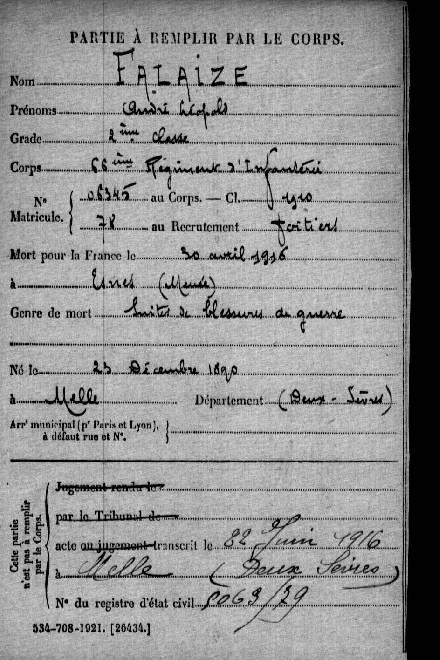 PARTIE À REMPLIR PAR LE CORPS.
Nom FALAIZE
Prénoms André Léopold
Grade 2ème Classe
Corps 66ème Régiment d'Infanterie
N° Matricule. { 06345 au Corps. — Cl. 1910
78 au Recrutement Poitiers
Mort pour la France le 30 avril 1916
à Esnes (Meuse)
Genre de mort Suites de blessures de guerre
Né le 23 Décembre 1890
à Melle Département (Deux-Sèvres)
Arrt municipal (pr Paris et Lyon),
à défaut rue et N°.
Cette partie n'est pas à remplir par le Corps.
Jugement rendu le
par le Tribunal de
acte ou jugement transcrit le 22 Juin 1916
à Melle (Deux Sèvres)
N° du registre d'état civil 5063/79
534-708-1921. [26434.]